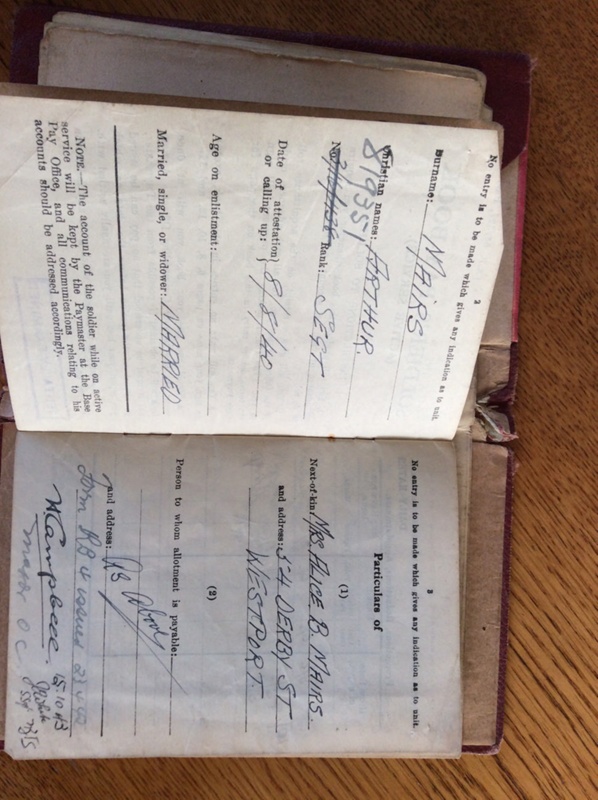 2
No entry is to be made which gives any indication as to unit
Surname: MAIRS
Christian names: ARTHUR.
819351
No. Rank: SEGT
Date of attestation
or calling up: } 8/8/40
Age on enlistment:
Married, single, or widower: MARRIED
NOTE.—The account of the soldier while on active
service will be kept by the Paymaster at the Base
Pay Office, and all communications relating to his
accounts should be addressed accordingly.
3
No entry is to be made which gives any indication as to unit.
Particulars of
(1)
Next-of-kin: MRS. ALICE B. MAIRS.
and address: 54 DERBY ST
WESTPORT
(2)
Person to whom allotment is payable:
and address: AB Above
Form issued
Campbell.
Major O C.